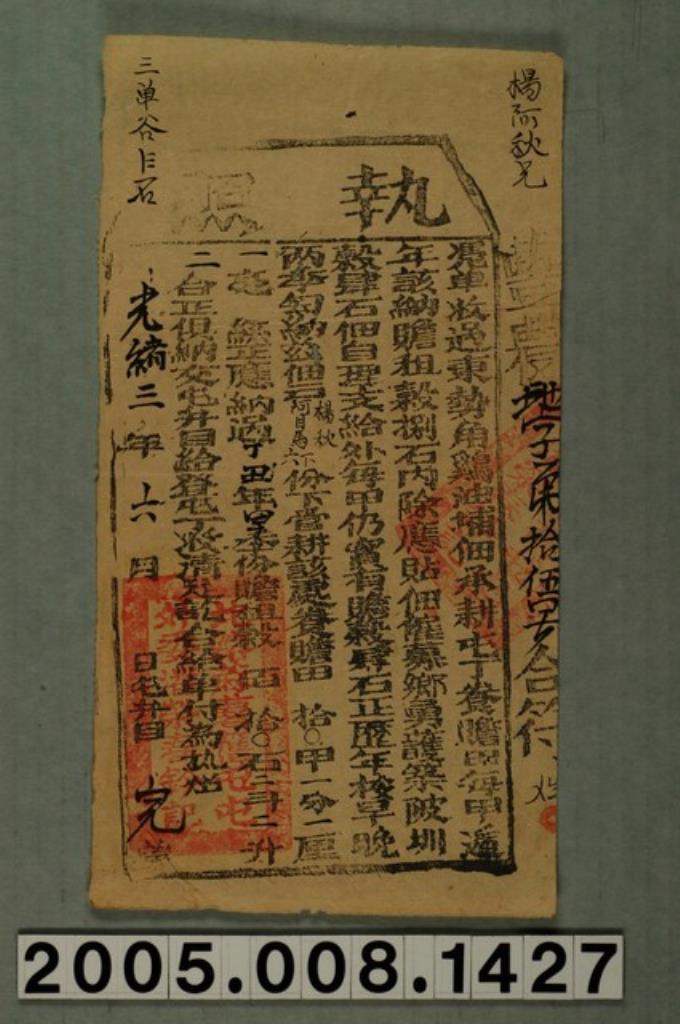 楊阿秋兄
執照
憑單收過東勢角雞油埔佃承耕屯丁養贍田每甲遞
年該納贍租穀捌石內除應貼佃僱募鄉勇護築陂圳
穀肆石佃自理支給外每甲仍實有贍穀肆石正歷年按早晚
兩季勻納茲佃 楊秋 份下當耕該處養贍田 拾 甲一分一厘
一 應納過丁丑年早季份贍租穀 石二斗二升
二 合正俱納交屯弁目給發屯丁收清足訖合給單付為執炤
光緒三年六月 日屯弁目 完
地字第柒拾伍號合符
三單谷 石
2005.008.1427